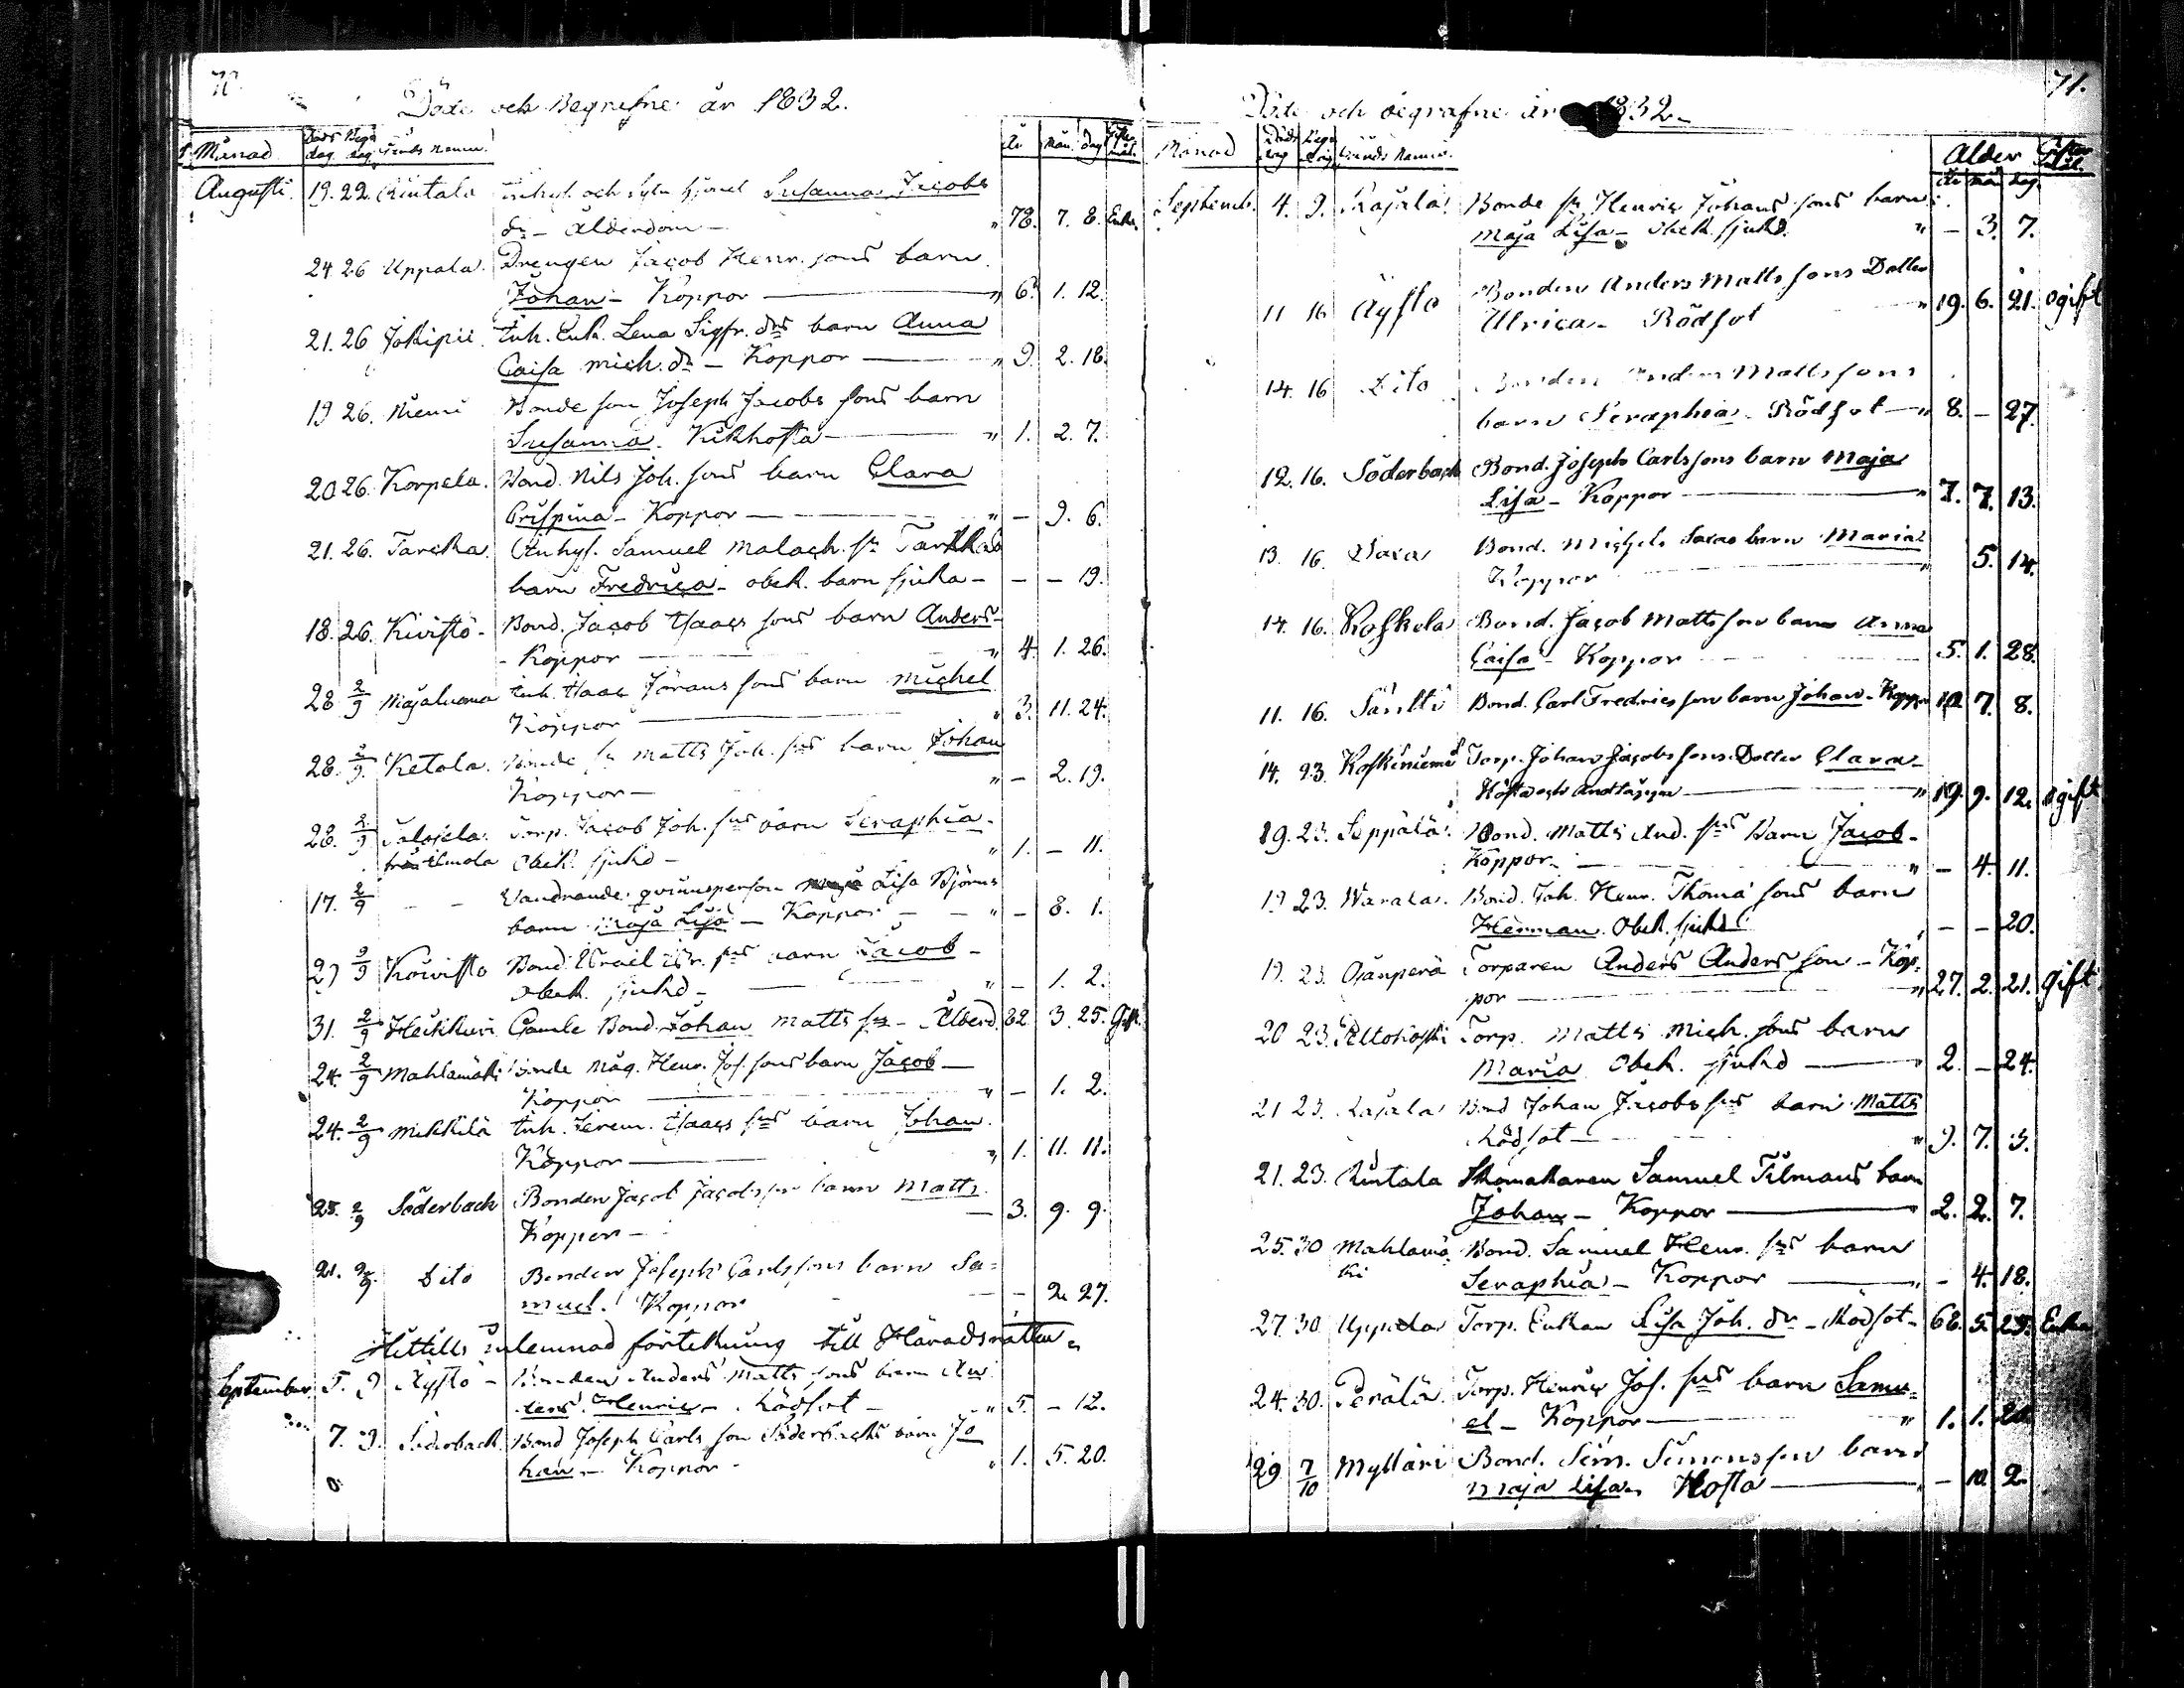 70.
Döde och Begrafne år 1832.
Månad Döds dag Begr dag Månad
Augusti. 19. 22. Rintala Inhys. och Sytn. hjonet Susanna Jacobs
dr - Ålderdom - " 78. 7. 8. Enka
24. 26 Uppala. Drengen Jacob Henr. sons barn
Johan - Koppor " 6. 1. 12.
21. 26 Jokipii. Inh. Enk. Lena Sigfr. drs barn Anna
Caisa Mich. dr - Koppor " 9. 2. 18.
19 26. Niemi Bonde son Joseph Jacobs sons barn
Susanna. Kikhosta " 1. 2. 7.
20 26. Korpela. Bond. Nils Joh. sons barn Clara
Crispina - Koppor " - 9. 6.
21. 26. Tarcka. Inhys. Samuel Malach. sn Tarkkas
barn Fredrica - obek. barn sjuka - - - 19.
18. 26. Kivistö - Bond. Jacob Isaacs sons barn Anders -
- Koppor " 4. 1. 26.
28 2/9 Majaluoma Inh. Isaac Jörans sons barn Michel
Koppor " 3. 11. 24.
28. 2/9. Ketola. Bonde sn Matts Joh. sns barn Johan
Koppor - " - 2. 19.
28. 2/9 Talojela. Torp. Jacob Joh. sns barn Seraphia -
från Ilmola Obek. sjukd - " 1. - 11.
17. 2/9 - - Vandrande qvinnsperson Lisa Björns
barn Maja Lisa - Koppor - " - 8. 1.
27 2/9 Koivisto Bond. Israel Isr. sns barn Jacob -
obek. sjukd - " - 1. 2.
31. 2/9 Heikkuri Gamle Bond. Johan Matts sn - Ålderd. 82 3. 25. Gift.
24. 2/9 Mahlamäki Bonde Måg. Henr. Jos. sons barn Jacob -
Koppor " - 1. 2.
24. 2/9 Mikkilä Inh. Jerem. Isaacs sns barn Johan.
Koppor " 1. 11. 11.
25. 2/9 Söderback Bonden Jacob Jacobsson barn Matts.
Koppor - - 3. 9. 9.
21. 2/9. Dito Bonden Joseph Carlssons barn Sa=
muel. Koppor - 2. 27.
Hittills inlemnad förtekning till Häradsrätten.
September. 5. 9 Äystö - Bonden Anders Matts sons barn An
ders Henric - Rödsot - " 5. - 12.
7. 9. Söderback. Bond Joseph Carls son Söderbacks barn Jo
han - Koppor - " 1. 5. 20.
71.
Döde och begrafne år 1832.
Månad Döds dag Begr dag
Ålder Giftermål.
År Mån dag.
Septemb. 4. 9. Rajala. Bonde sn Henric Johans sons barn
Maja Lisa - Obek. sjukd. " - 3. 7.
11 16 Äysto Bonden Anders Matts sons Dotter
Ulrica - Rödsot " 19. 6. 21. Ogift
14. 16 Dito Bonden Anders Matts sons
barn Seraphia - Rödsot " 8. - 27.
12. 16. Söderback Bond. Joseph Carlssons barn Maja
Lisa - Koppor " 7. 7. 13.
13. 16. Saxa Bond. Michels Saxas barn Maria
Koppor " 5. 14.
14. 16. Koskela Bond. Jacob Mattsson barn Anna
Caisa - Koppor 5. 1. 28.
11. 16. Säntti Bond. Carl Fredricsson barn Johan - Koppor 10 7. 8.
14. 23. Koskiniemi Torp. Johan Jacobs sons Dotter Clara -
Hosta och Andtäppa " 19. 9. 12. Ogift
19. 23. Seppälä. Bond. Matts And. sns barn Jacob -
Koppor - " - 4. 11.
19 23. Warala. Bond. Joh. Henr. Thoma sons barn
Herman. Obek. sjukd - - 20.
19. 23. Ojanperä Torparen Anders Anders son - Kop-
por " 27. 2. 21. Gift
20 23. Peltokoski Torp. Matts Mich. sons barn
Maria Obek. sjukd " 2. - 24.
21 23. Rajala Bond Johan Jacobs sns barn Matts
Rödsot - " 9. 7. 3.
21. 23. Rintala Skomakaren Samuel Tilmans barn
Johan - Koppor " 2. 2. 7.
25. 30 Mahlamä Bond. Samuel Henr. sns barn
ki Seraphia - Koppor " - 4. 18.
27. 30 Uppala Torp. Enkan Lisa Joh. dr - Rödsot - 68. 5. 23. Enka
24. 30. Perälä. Torp. Henric Jos. sns barn Samu=
el - Koppor " 1. 1. 20.
29 7/10 Myllari Bond. Sim. Simonsson barn
Maja Lisa. Hosta - 10. 2.